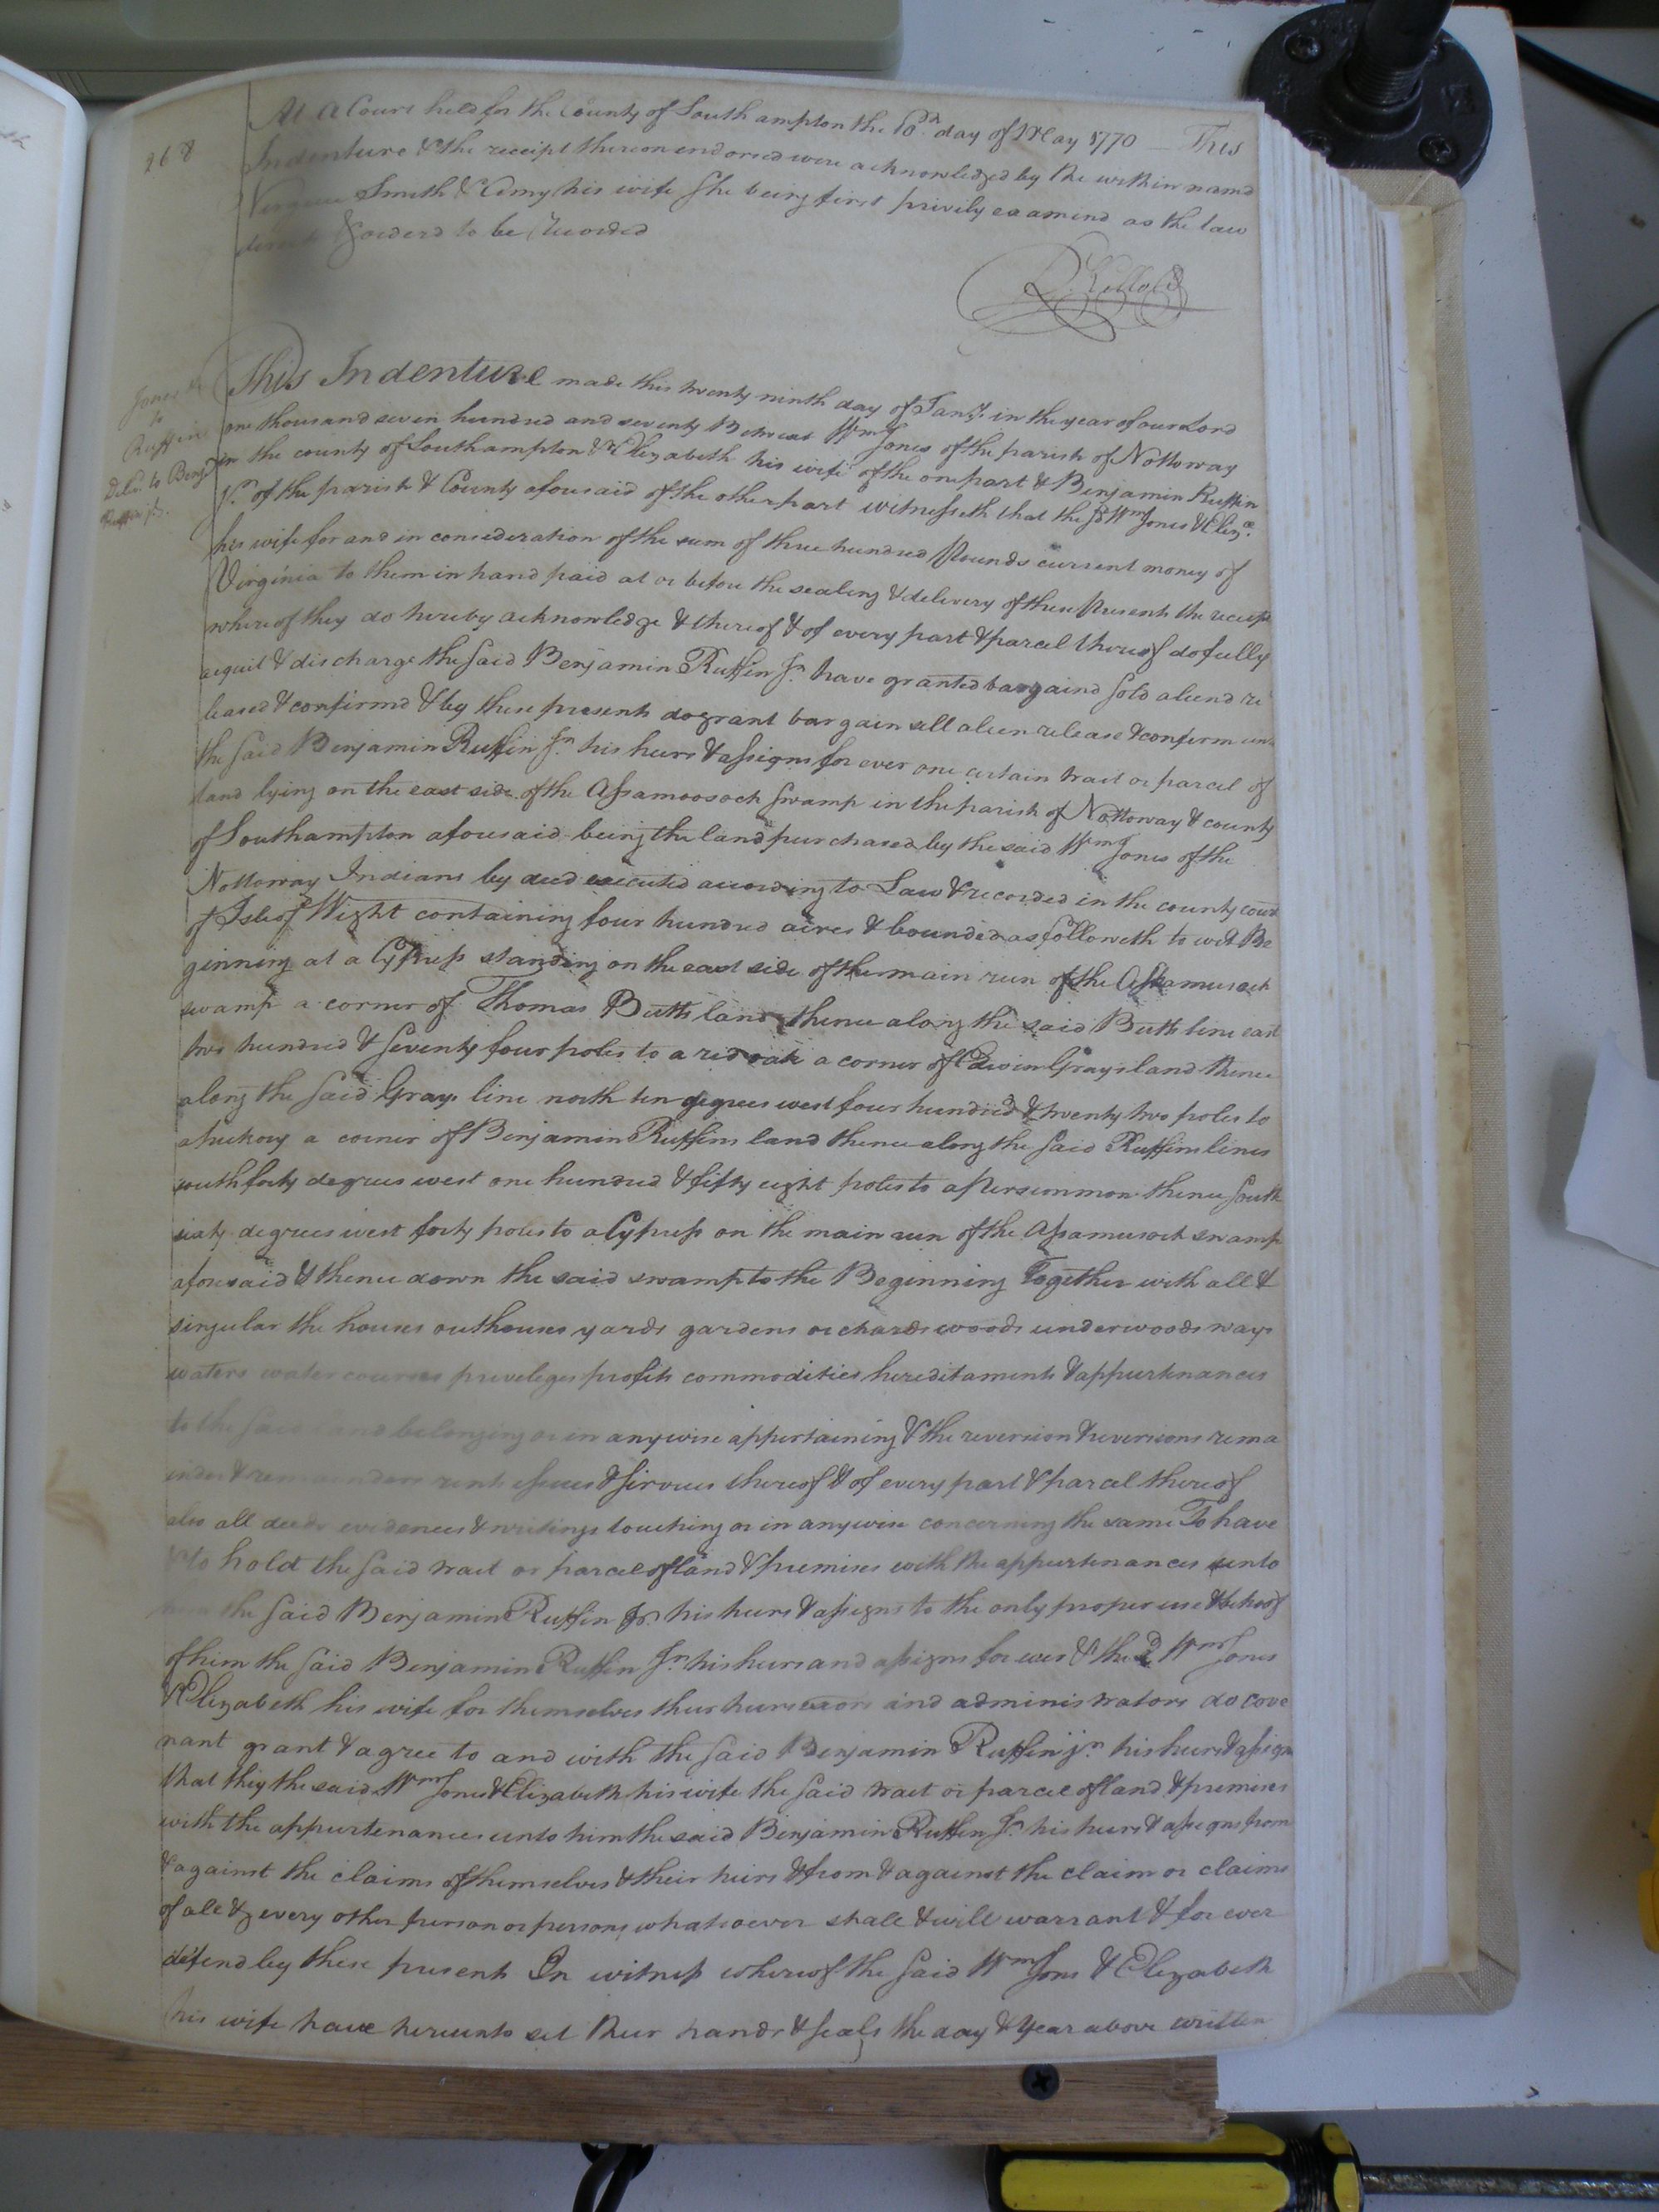 268
At a Court held for the County of Southampton the 10th day of May 1770 — This
Indenture & the receipt thereon endorsed were acknowledged by the within namd
Smith & Amy his wife she being first privily examind as the law
& orderd to be Recorded
Jones
to
Ruffin
Deld. to Benja
Ruffin jr.
This Indenture made this twenty ninth day of Jany. in the year of our Lord
one thousand seven hundred and seventy Between Wm Jones of the parish of Nottoway
in the county of Southampton & Elizabeth his wife of the one part & Benjamin Ruffin
Jn. of the parish & County afousaid of the other part witnesseth that the sd Wm Jones & Eliza.
his wife for and in consideration of the sum of three hundred Pounds current money of
Virginia to them in hand paid at or before the sealing & delivery of these Presents the receipt
whereof they do hereby acknowledge & thereof & of every part & parcel thereof do fully
acquit & discharge the said Benjamin Ruffin Jn. have granted bargaind sold aliend re
leased & confirmd & by these presents do grant bargain sell alien release & confirm un
the said Benjamin Ruffin Jn. his heirs & assigns for ever one certain tract or parcel of
land lying on the east side of the Assamoosock swamp in the parish of Nottoway & county
of Southampton afousaid being the land purchased by the said Wm Jones of the
Nottoway Indians by deed executed according to Law & recorded in the county court
of Isle of Wight containing four hundred acres & bounded as followeth to wit Be
ginning at a Cypress standing on the east side of the main run of the Assamusock
swamp a corner of Thomas Butts land thence along the said Butts line east
two hundred & seventy four poles to a red oak a corner of Edwin Grays land thence
along the said Grays line north ten degrees west four hundred & twenty two poles to
a hickory a corner of Benjamin Ruffins land thence along the said Ruffins lines
south forty degrees west one hundred & fifty eight poles to a Persemmon thence South
sixty degrees west forty poles to a Cypress on the main run of the Assamusock swamp
afousaid & thence down the said swamp to the Beginning Together with all &
singular the houses outhouses yards gardens orchards woods underwoods ways
waters water courses priveleges profits commodities hereditaments & appurtenances
to the said land belonging or in any wise appertaining & the reversion & reversions rema
inder & remainders rents issues & services thereof & of every part & parcel thereof
also all deeds evidences & writings touching or in any wise concerning the same To have
& to hold the said tract or parcel of land & premises with the appurtenances unto
him the said Benjamin Ruffin Jn. his heirs & assigns to the only proper use & behoof
of him the said Benjamin Ruffin Jn. his heirs and assigns for ever & the sd Wm Jones
& Elizabeth his wife for themselves their heirs exors and administrators do cove
nant grant & agree to and with the said Benjamin Ruffin jn. his heirs & assigns
that they the said Wm Jones & Elizabeth his wife the said tract or parcel of land & premises
with the appurtenances unto him the said Benjamin Ruffin Jn. his heirs & assigns from
& against the claims of themselves & their heirs & from & against the claim or claims
of all & every other person or persons whatsoever shall & will warrant & for ever
defend by these present In witness whereof the said Wm Jones & Elizabeth
his wife have hereunto set their hands & seals the day & year above written